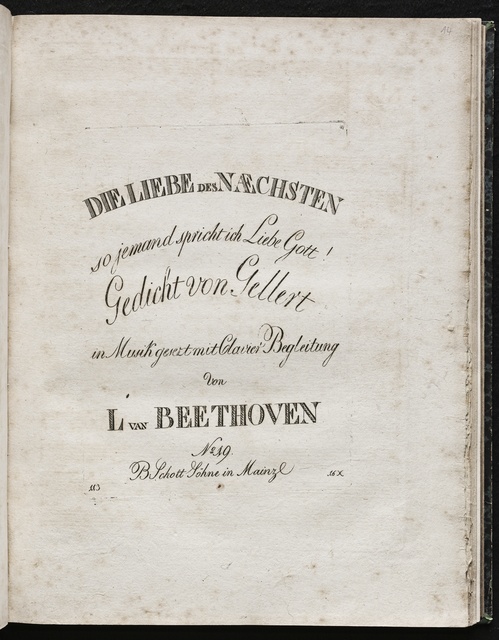 14
DIE LIEBE DES NÆCHSTEN
so jemand spricht ich Liebe Gott!
Gedicht von Gellert
in Musik gesezt mit Clavier Begleitung
von
L. VAN BEETHOVEN
No 19.
B. Schott Söhne in Mainz
113 16 X